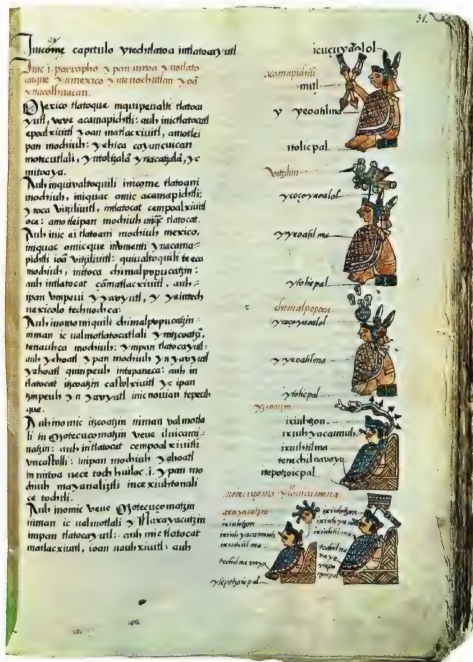 51.
Inic ome capitulo ytechtlatoa intlatocayutl
Inic .i. parrapho ypan mitoa ynotlato
catque yn mexico yn tenochtitlan yoã
yn acolhuacan.
Mexico tlatoque inquipeualti tlatoca
yutl, veve acamapichtli: auh inictlatocatl
epoalxiuitl yoan matlacxiuitl, amotlei
pan mochiuh: yehica çayuncuican
mocuitlali, yntoltzalã ynacatzalã, yc
mitoaya.
Auh inquivaltoquili inicome tlatoani
mochiuh, iniquac omic acamapichtli:
ytoca Vitziliuitl, intlatocat cempoalxiuitl
oce: amotleipan mochiuh inic tlatocat.
Auh inic ei tlatoani mochiuh mexico,
iniquac omicque
pichtli ioã vitziliuitl: quiualtoquili
mochiuh, mitoca chimalpupucatzin:
auh intlatocat cãmatlacxiuitl, auh
ipan
mexicolo technochca:
Auh inomomiquili chimalpupucatzin
niman ic ualmotlatocatlali ytzcoatzĩ,
tenauhca mochiuh: ympan tlatocayutl:
auh yehoatl ypan mochiuh yn yauyutl
yehoatl quinpeuh intepaneca: auh in
tlatocat itzcoatzin caxtolxiuitl yc ipan
tzinpeuh yn yauyutl inic nouian tepeuh
que.
Auh inomic itzcoatzin niman valmotla
li in Motecuçomatzin veue ilhuicami
natzin: auh intlatocat cempoalxiuitl
yncaxtolli: inipan mochiuh yehoatl
in mitoa necetochhuiloc .i. ypan mo
chiuh mayanaliztli ince xiuhtonali
ce tochtli.
Auh inomic Veue Motecuçomatzin
niman ic ualmotlali yn Axayacatzin
impan tlatocayutl: auh inic tlatocat
matlacxiuitl, ioan nauhxiuitl: auh
icuçuyaolol
acamapichtli
mitl
y yeoatilma
itolicpal
Vitziliui
ycoçoyaoalol
yyeoatilma
ytolicpal
chimalpopoca
ycoçoyaoalol
yyeoatilma
ytolicpal
ytzcoatzin
ixiuhtzon
ixiuhyacamiuh
ixiuhtilma
tenechilnavaya
itepotzoicpal
motecuçoma ylhuicamina
axayacatzin
ixiuhtzon
ixiuhyacamiuh
ixiuhtilma
tochilnavaya
ytepotzoicpal
ixiuhtzon
ixiuhyaca
ixiuhtilma